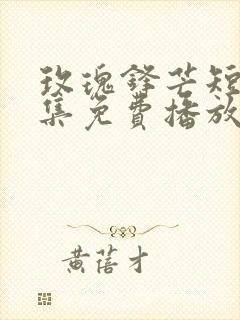 玫瑰鋒芒短
集免費播放
黄蓓才